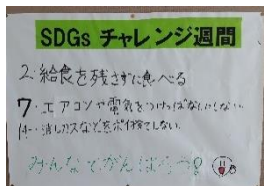 SDGs チャレンジ週間
2. 給食を残さずに食べる
7. エアコンや電気をつけっぱなしにしない。
14. 消しカスなどをポイ捨てしない。
みんなでがんばろう!